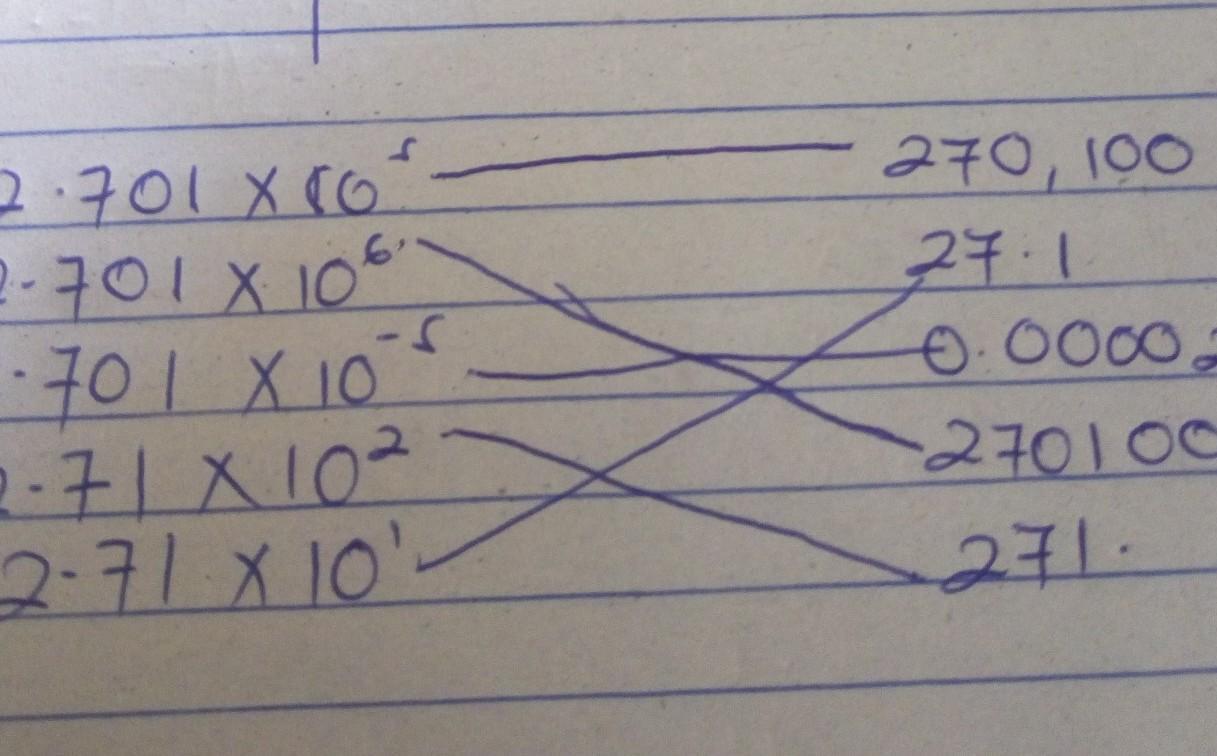 2.701 X 10⁵ 270,100
2.701 X 10⁶ 27.1
.701 X 10⁻⁵ 0.00002
2.71 X 10² 270100
2.71 X 10¹ 271.